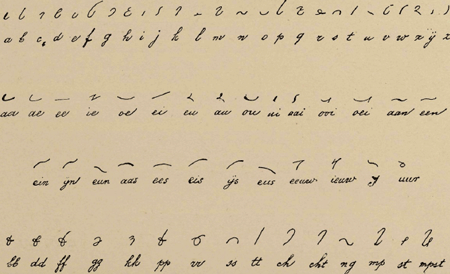 a b c d e f g h i j k l m n o p q r s t u v w x ÿ z
aa ae ee ie oe ei eu au ou ui aai ooi oei aan een
ein ÿn eun aas ees eis ÿs eus eeuw ieuw uur
bb dd ff gg kk pp vv ss tt ch cht ng mp st mpst